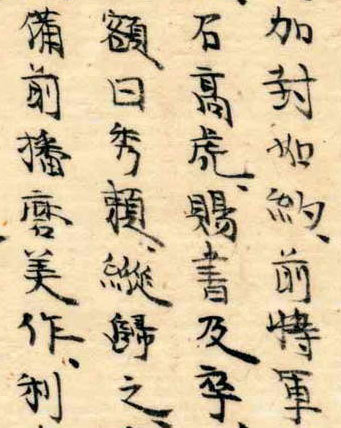 加封如約、前将軍
石高虎、賜書及卒
額曰秀頼、縱歸之
備前播磨美作、利